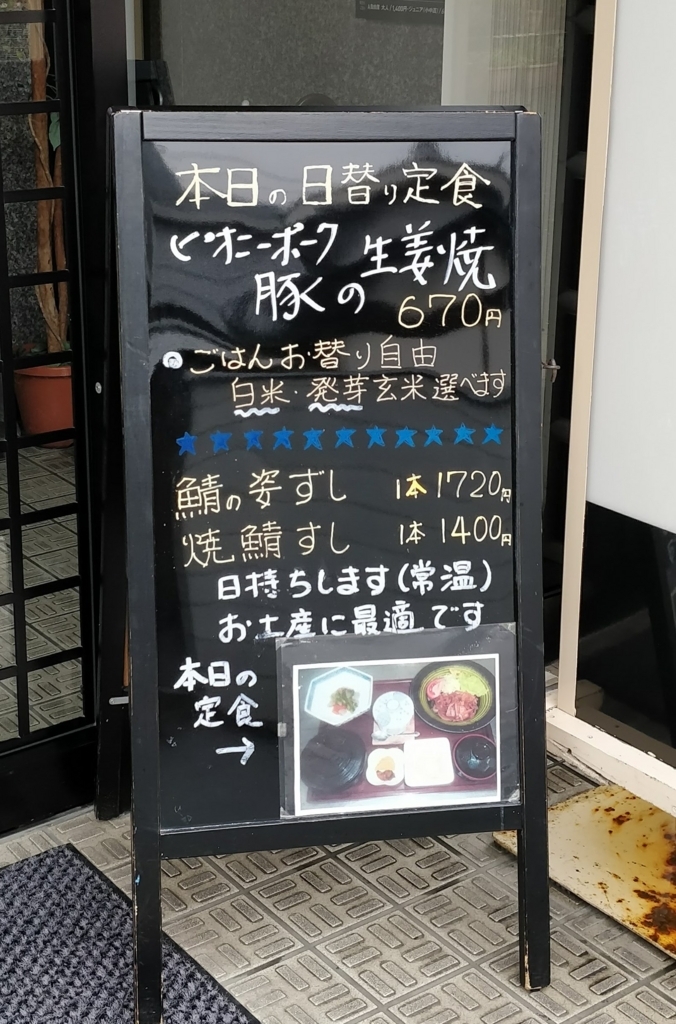 本日の日替り定食
ピオニーポーク
豚の生姜焼
670円
ごはんお替り自由
白米・発芽玄米選べます
★★★★★★★★★★★
鯖の姿ずし 1本1720円
焼鯖すし 1本1400円
日持ちします(常温)
お土産に最適です
本日の
定食
→